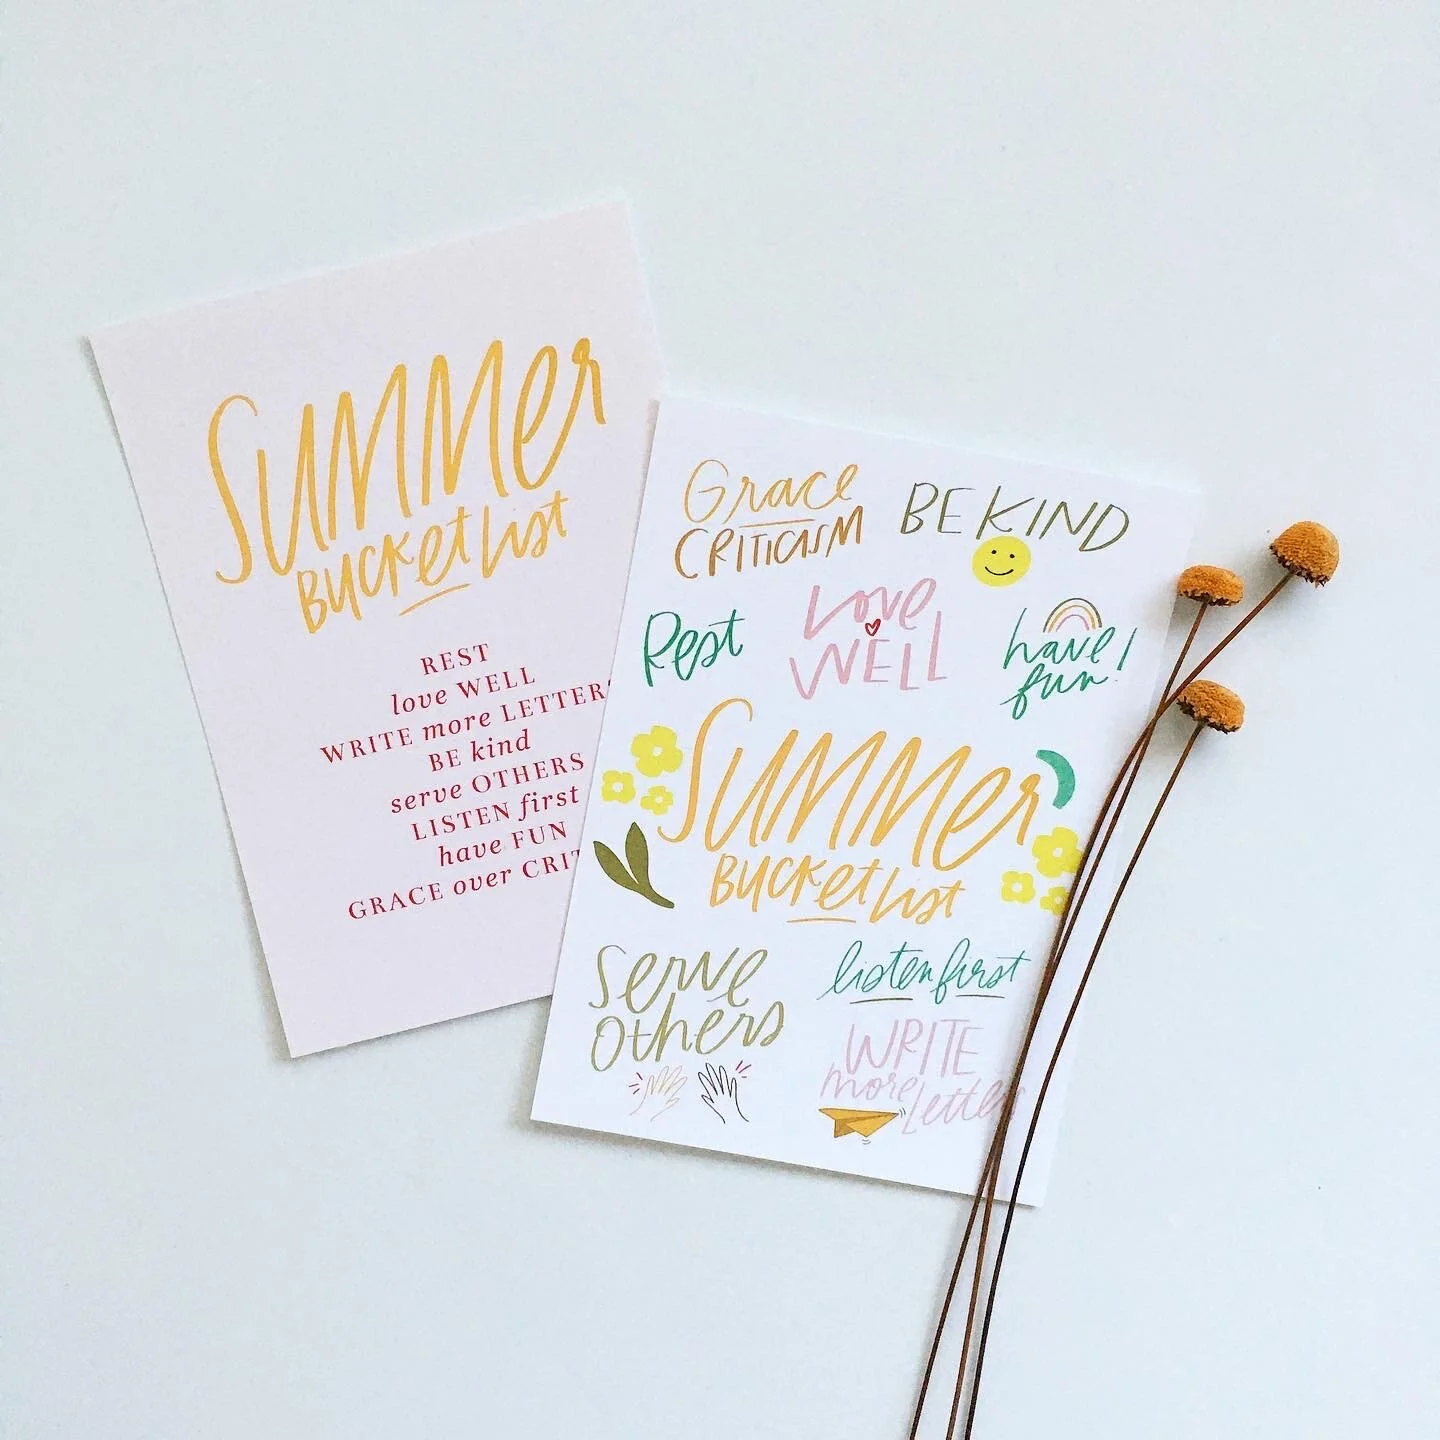 SUMMer
BUCKet list
REST
love WELL
WRITE more LETTERS
BE kind
serve OTHERS
LISTEN first
have FUN
GRACE over
Grace
CRITICISM
BE KIND
Rest
love
WELL
have
fun!
SUMMer
BUCKet list
serve
others
listen first
WRITE
more
Letters